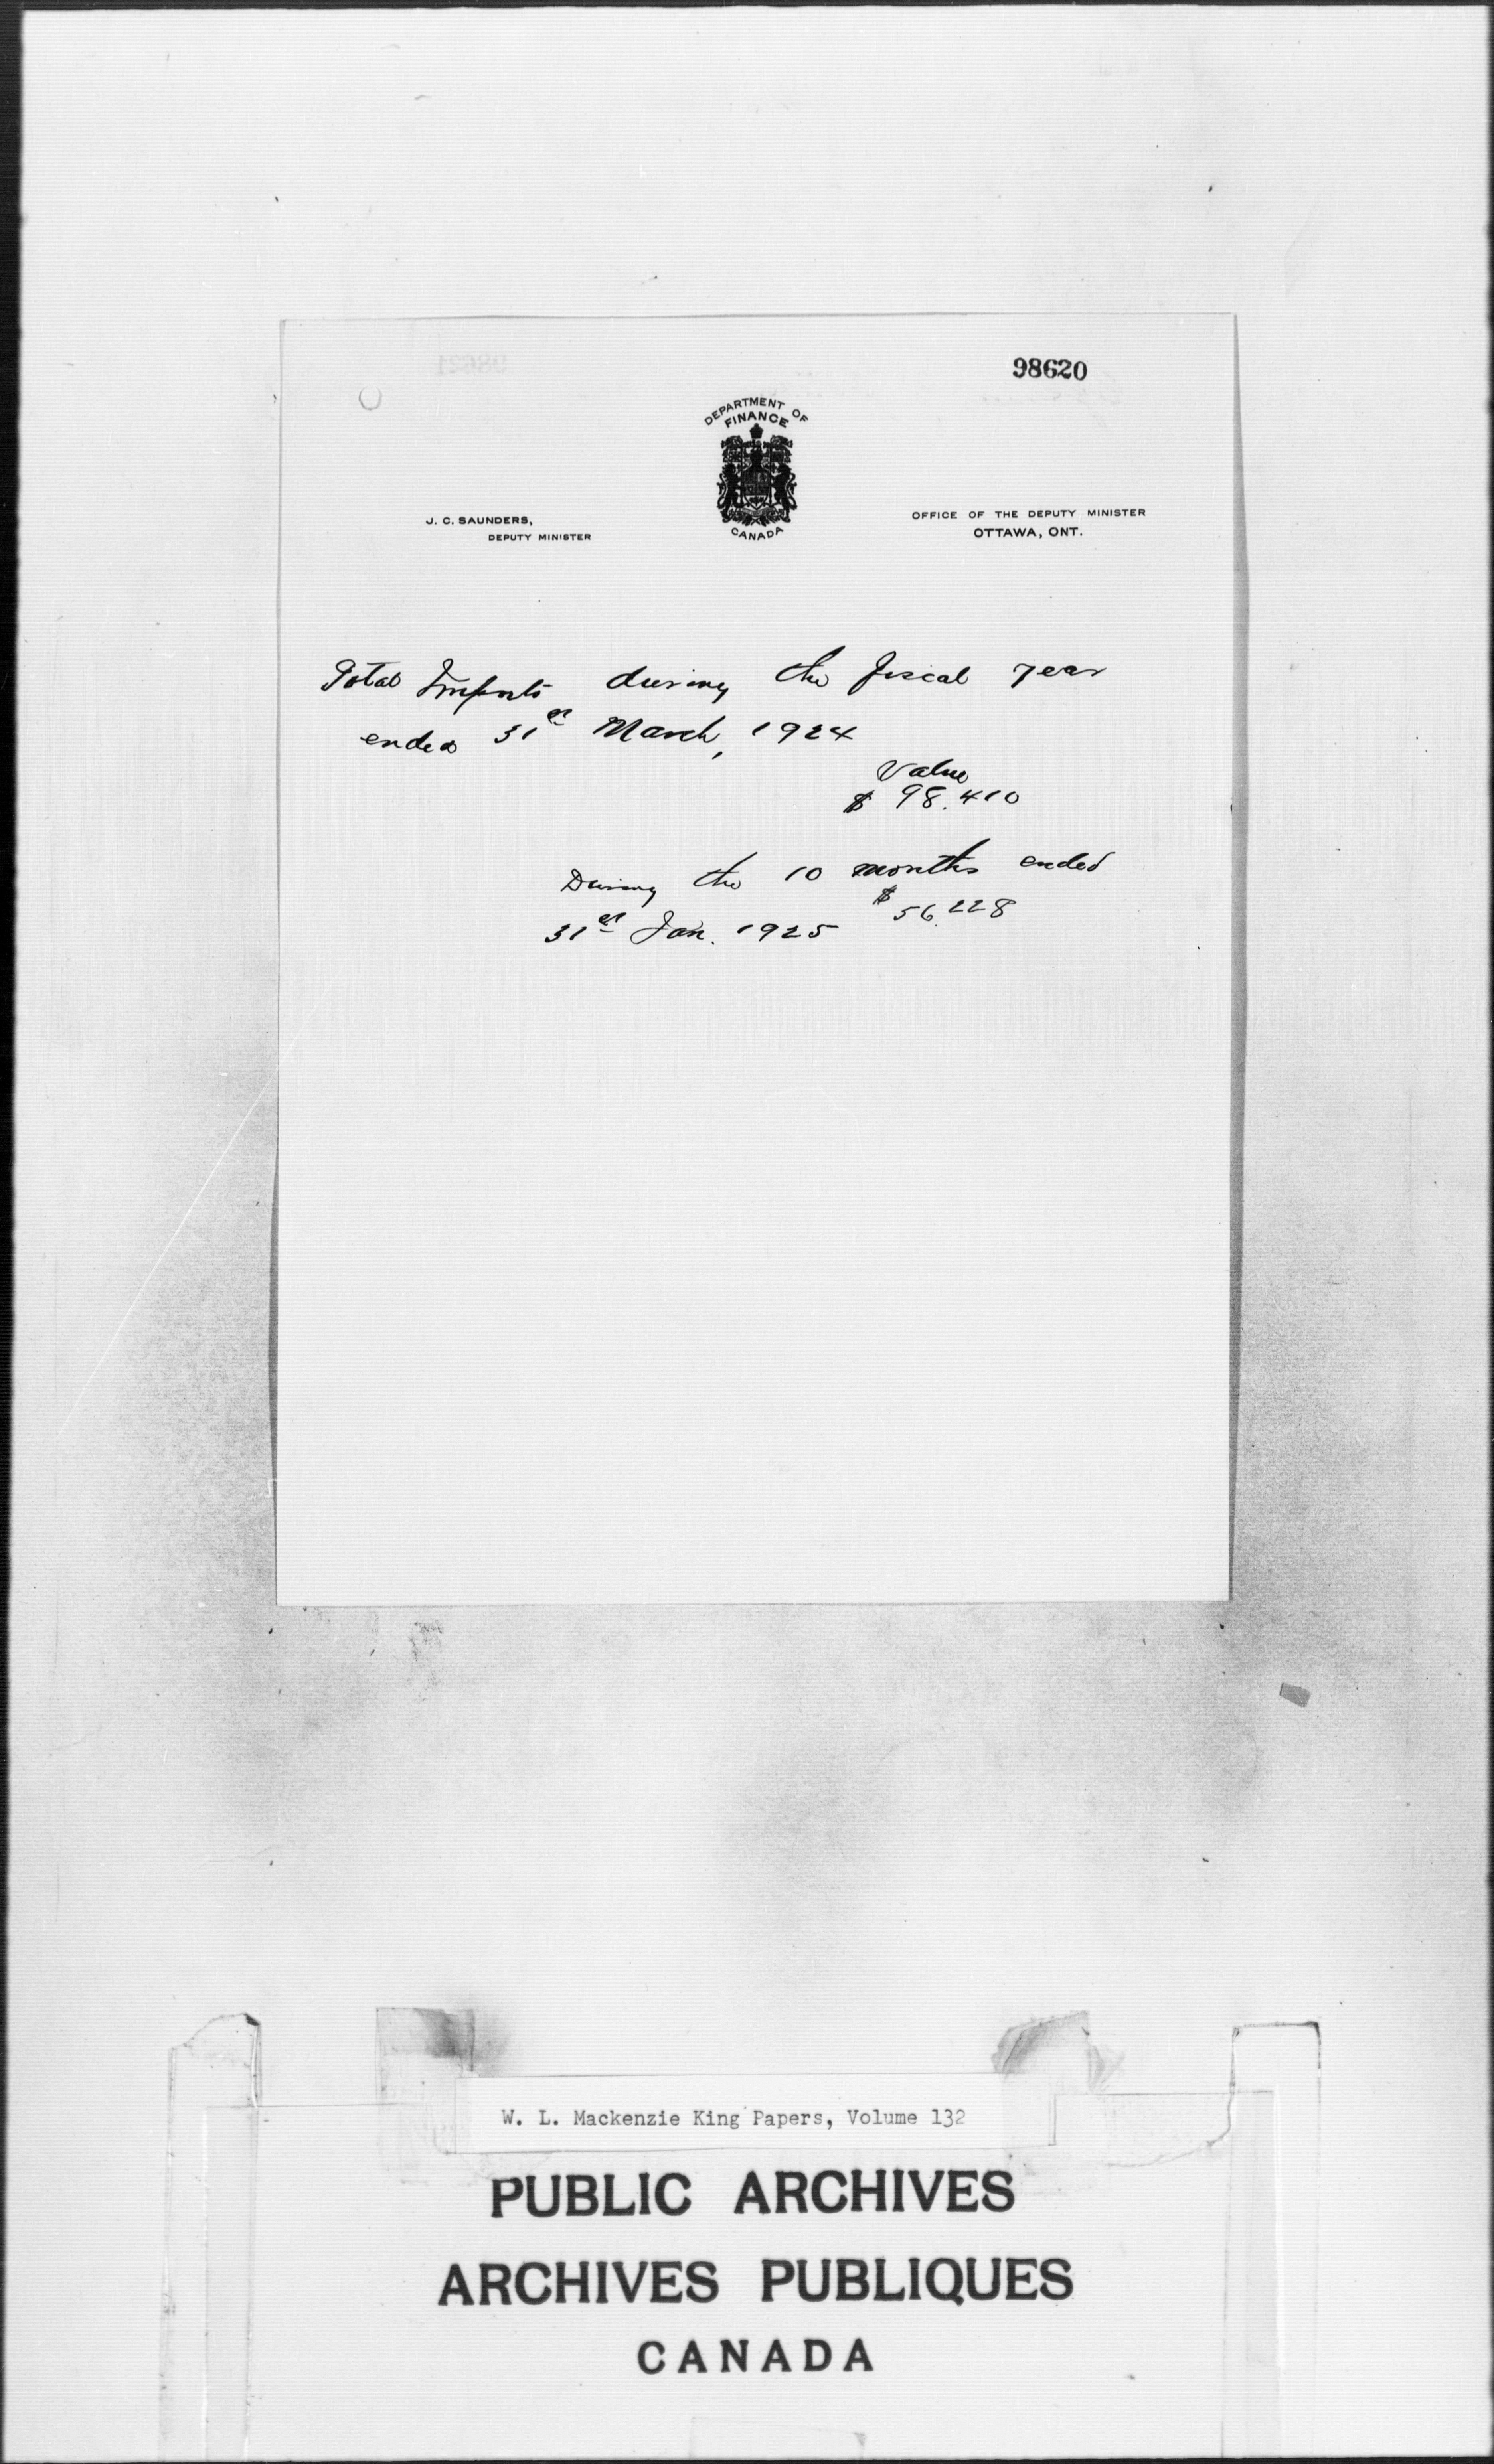 98620
DEPARTMENT OF
FINANCE
CANADA
J. C. SAUNDERS,
DEPUTY MINISTER
OFFICE OF THE DEPUTY MINISTER
OTTAWA, ONT.
Total Imports during the fiscal year
ended 31st March, 1924
Value
$ 98.410
During the 10 months ended
31st Jan. 1925 $ 56.228
W. L. Mackenzie King Papers, Volume 132
PUBLIC ARCHIVES
ARCHIVES PUBLIQUES
CANADA